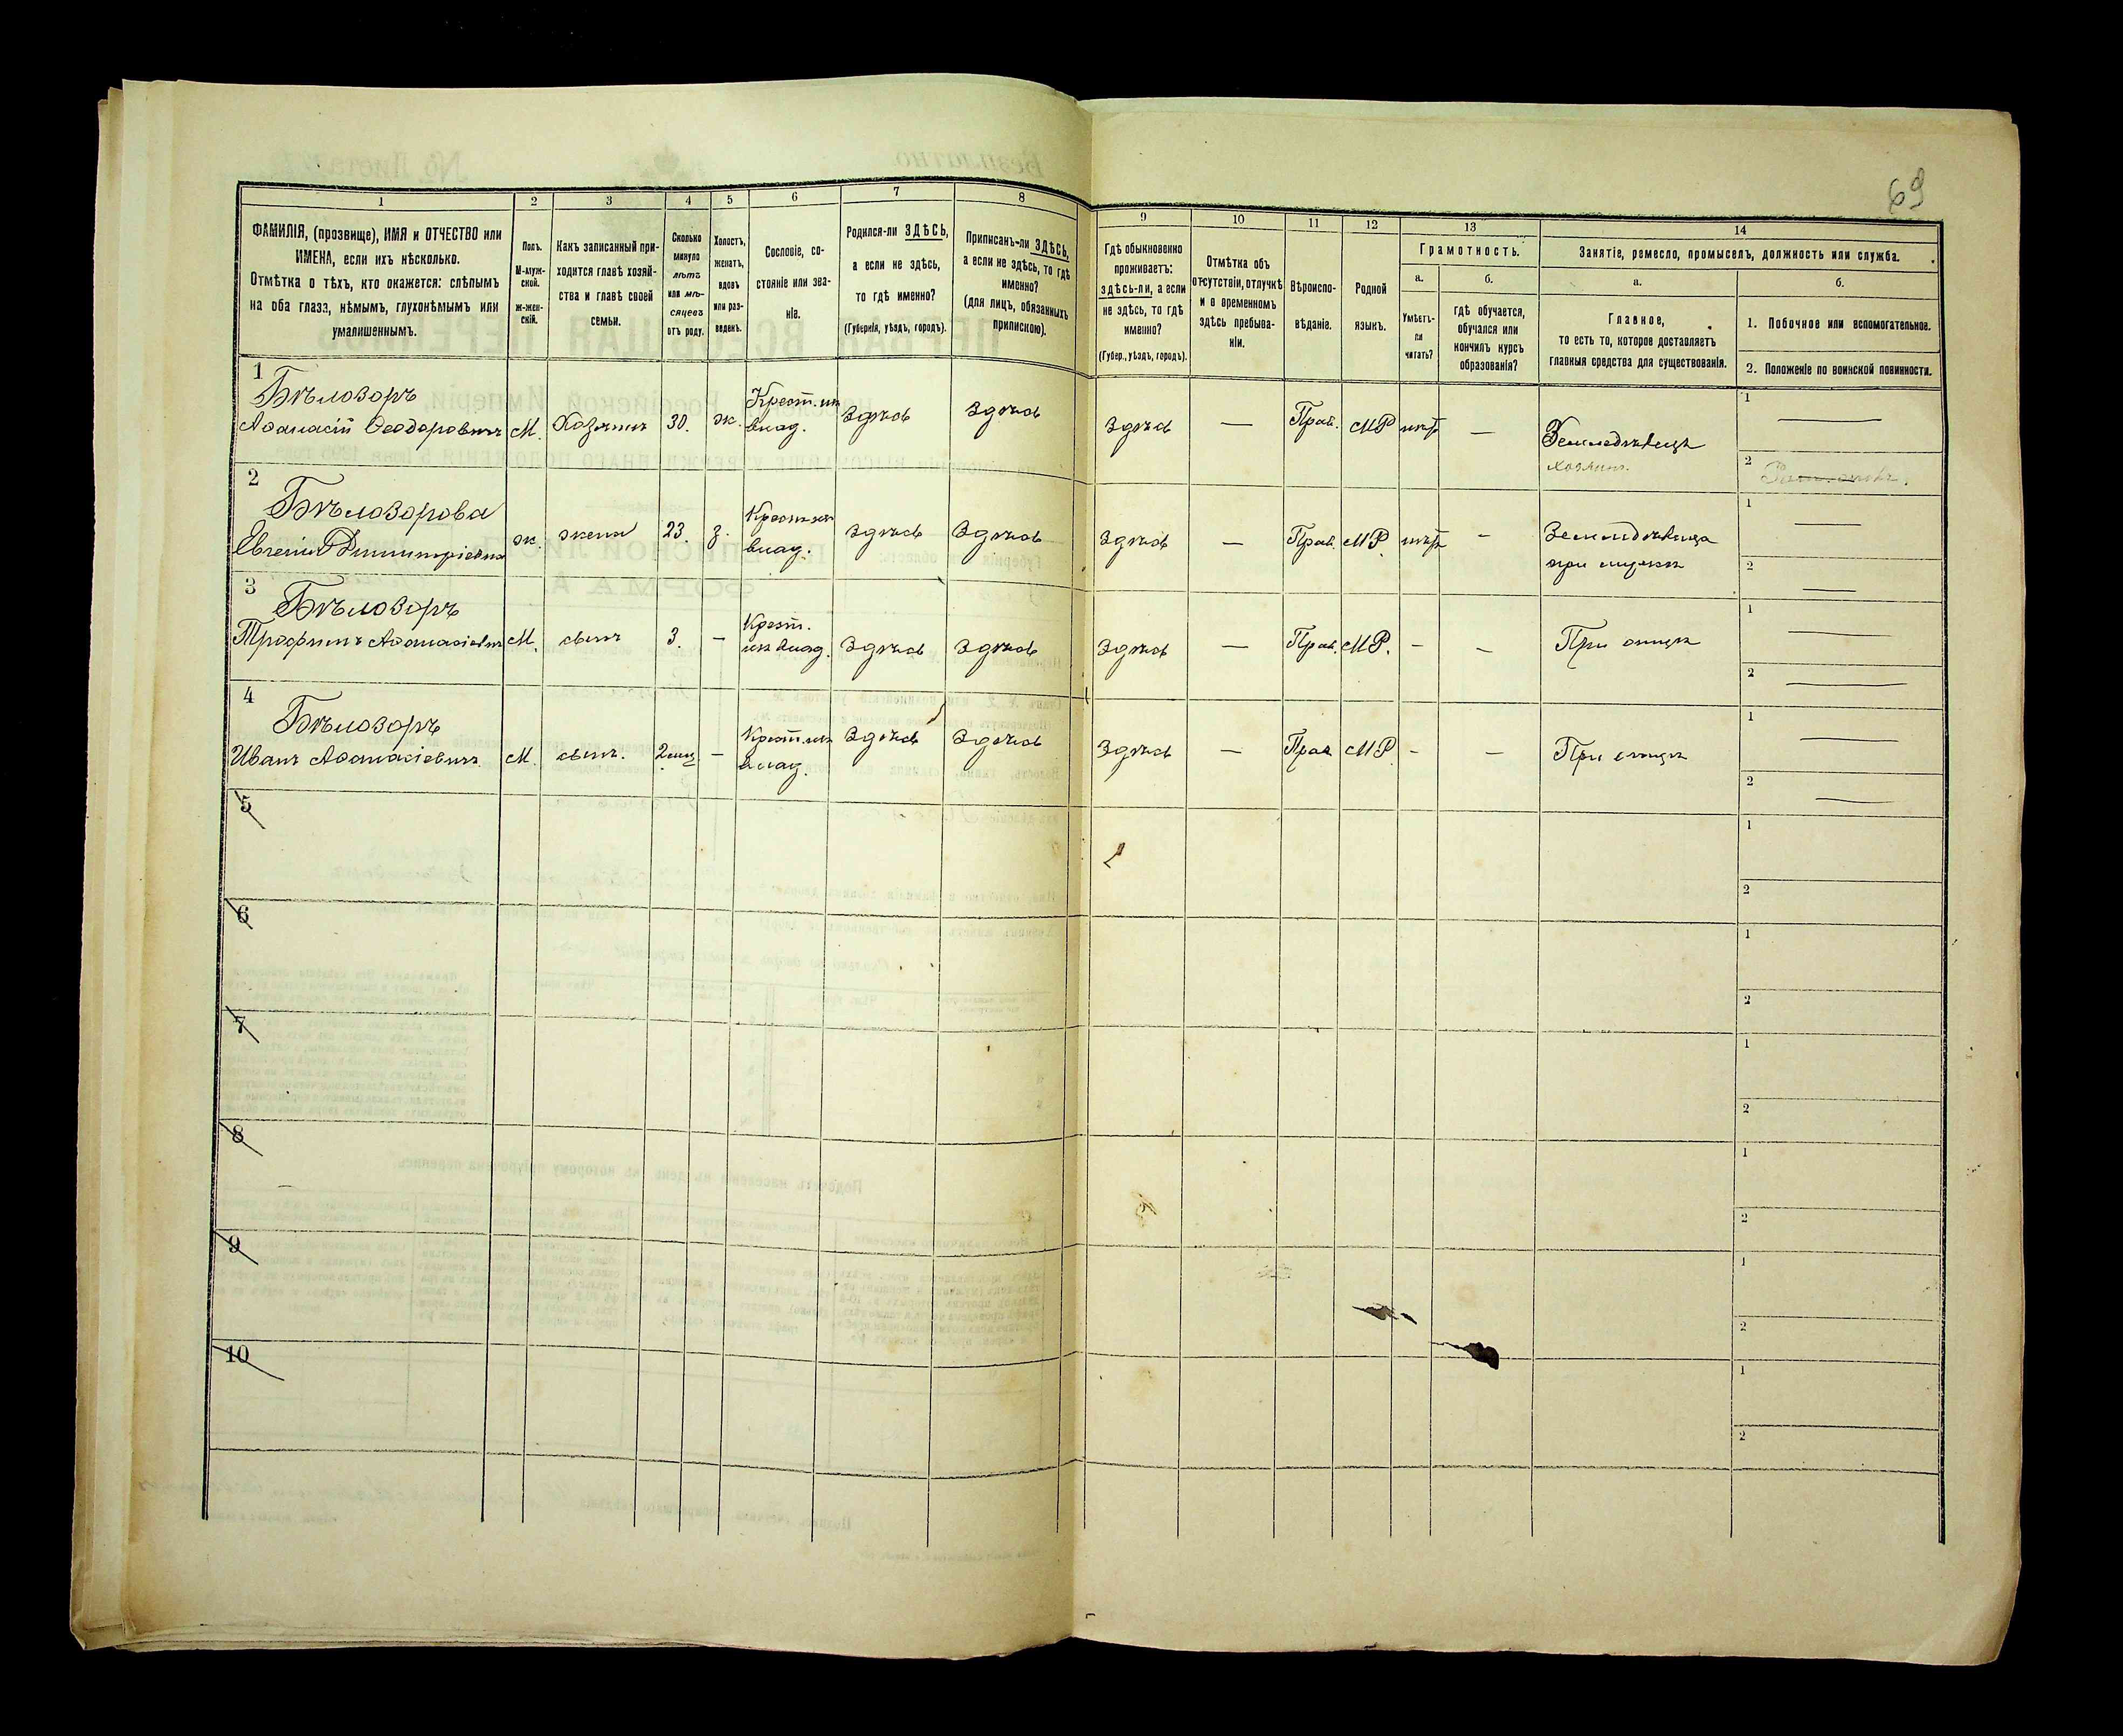 69
1 2 3 4 5 6 7 8 9 10 11 12 13 14
ФАМИЛІЯ, (прозвище), ИМЯ и ОТЧЕСТВО или
ИМЕНА, если ихъ нѣсколько.
Отмѣтка о тѣхъ, кто окажется: слѣпымъ
на оба глаза, нѣмымъ, глухонѣмымъ или
умалишеннымъ.
Полъ.
М-муж-
ской.
ж-жен-
скій.
Какъ записанный при-
ходится главѣ хозяй-
ства и главѣ своей
семьи.
Сколько
минуло
лѣтъ
или мѣ-
сяцевъ
отъ роду.
Холостъ,
женатъ,
вдовъ
или раз-
веденъ.
Сословіе, со-
стояніе или зва-
ніе.
Родился-ли ЗДѢСЬ,
а если не здѣсь,
то гдѣ именно?
(Губернія, уѣздъ, городъ).
Приписанъ-ли ЗДѢСЬ,
а если не здѣсь, то гдѣ
именно?
(для лицъ, обязанныхъ
припискою).
Гдѣ обыкновенно
проживаетъ:
здѣсь-ли, а если
не здѣсь, то гдѣ
именно?
(Губер., уѣздъ, городъ).
Отмѣтка объ
отсутствіи, отлучкѣ
и о временномъ
здѣсь пребыва-
ніи.
Вѣроиспо-
вѣданіе.
Родной
языкъ.
Грамотность.
а.
Умѣетъ-
ли
читать?
б.
гдѣ обучается,
обучался или
кончилъ курсъ
образованія?
Занятіе, ремесло, промыселъ, должность или служба.
а.
Главное,
то есть то, которое доставляетъ
главныя средства для существованія.
б.
1. Побочное или вспомогательное.
2. Положеніе по воинской повинности.
1
Бѣлозоръ
Афанасій Феодоровичъ М. Хозяинъ 30. ж. Крест. изъ
влад. Здѣсь Здѣсь Здѣсь — Прав. МР нѣтъ — Земледѣлецъ
хозяинъ.
1 —
2
2
Бѣлозорова
Евгенія Димитріевна ж. жена 23. з. Крест. изъ
влад. Здѣсь Здѣсь Здѣсь — Прав. МР. нѣтъ - Земледѣлица
при мужѣ
1 —
2 —
3
Бѣлозоръ
Трофимъ Афанасіевичъ М. сынъ 3. — Крест.
изъ влад. Здѣсь Здѣсь Здѣсь — Прав. МР. - - При отцѣ
1 —
2 —
4
Бѣлозоръ
Иванъ Афанасіевичъ М. сынъ. 2 мѣс. — Крест. изъ
влад. Здѣсь Здѣсь Здѣсь — Прав МР. - - При отцѣ
1 —
2 —
5
1
2
6
1
2
7
1
2
8
1
2
9
1
2
10
1
2